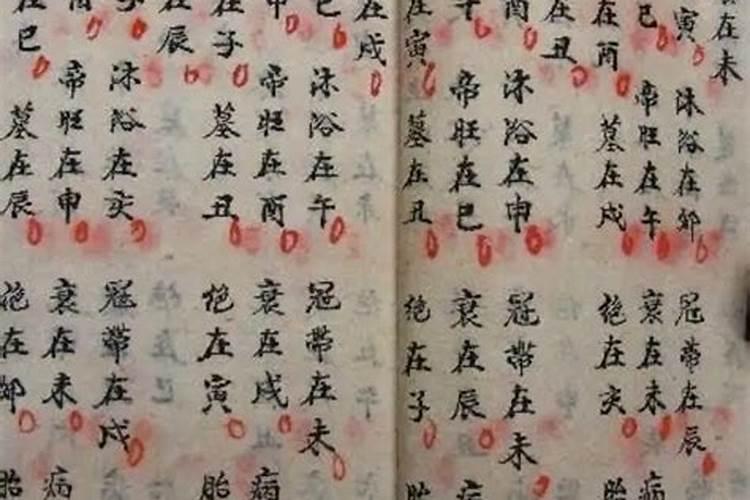 在未
寅
巳
在酉
在丑
酉
在寅
沐浴在卯
帝旺在午
墓在戌
沐浴在申
帝旺在巳
墓在丑
冠帶在辰
衰在未
绝在亥
冠帶在未
衰在辰
绝在子
病
胎
病
胎
在戌
巳
申
在子
在辰
子
在巳
沐浴在午
帝旺在酉
墓在丑
沐浴在亥
帝旺在申
墓在辰
冠帶在未
衰在戌
绝在寅
冠帶在戌
衰在未
绝在卯
病
胎
病
胎